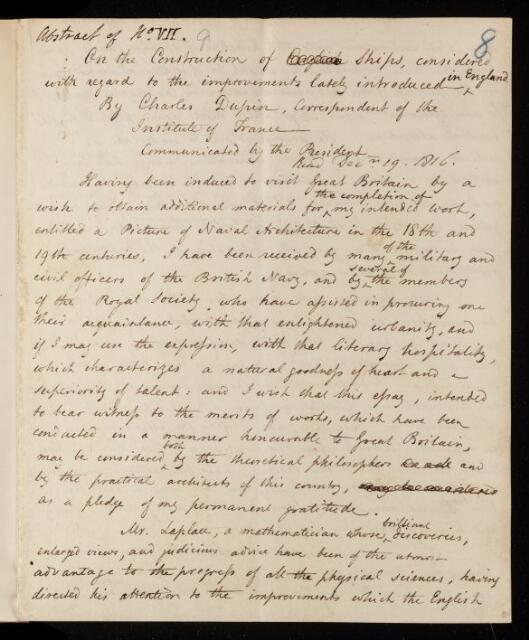 Abstract of No. VII. 9
8
On the Construction of English Ships, considered
with regard to the improvements lately introduced in England
By Charles Dupin, Correspondent of the
Institute of France
Communicated by the President
Read Decr 19. 1816.
Having been induced to visit Great Britain by a
wish to obtain additional materials for the completion of my intended work,
entitled a Picture of Naval Architecture in the 18th and
19th centuries, I have been received by many of the military and
civil officers of the British Navy, and by several of the members
of the Royal Society who have assisted in procuring me
their acquaintance, with that enlightened urbanity, and
if I may use the expression, with that literary hospitality,
which characterizes a natural goodness of heart and a
superiority of talent: and I wish that this essay, intended
to bear witness to the merits of works, which have been
conducted in a manner honourable to Great Britain,
may be considered both by the theoretical philosophers and
by the practical architects of this country,
as a pledge of my permanent gratitude.
Mr. Laplace, a mathematician whose brilliant discoveries,
enlarged views, and judicious advice have been of the utmost
advantage to the progress of all the physical sciences, having
directed his attention to the improvements which the English